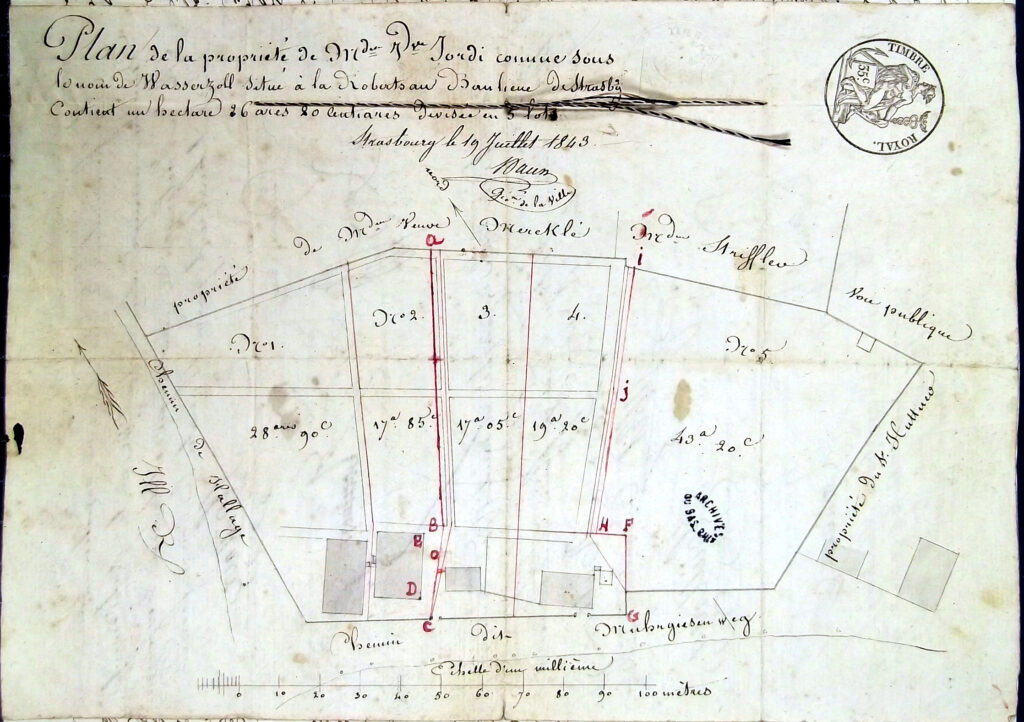 Plan de la propriété de Mdme Vve Jordi connue sous
le nom de Wasserzoll situé à la Robertsau Banlieue de Strasbg
Contient un hectare 26 ares 20 Centiares divisée en 5 lots
Strasbourg le 19 Juillet 1843.
Géom. de la Ville
TIMBRE
ROYAL.
35c
nord
propriété de Mdme Veuve Mercklé
Mdme Striffler
Voie publique
a
i
No 1.
No 2.
3.
4.
No 5
j
28 ares 90c
17a 85c
17a 05c
19a 20c
43a 20c
Chemin de Hallage
Ill R.
propriété du Sr.
ARCHIVES
DU BAS RHIN
B
E
O
D
C
H
F
G
Chemin dit Muhrgiesen Weg
Echelle d'un millième
0 10 20 30 40 50 60 70 80 90 100 mètres